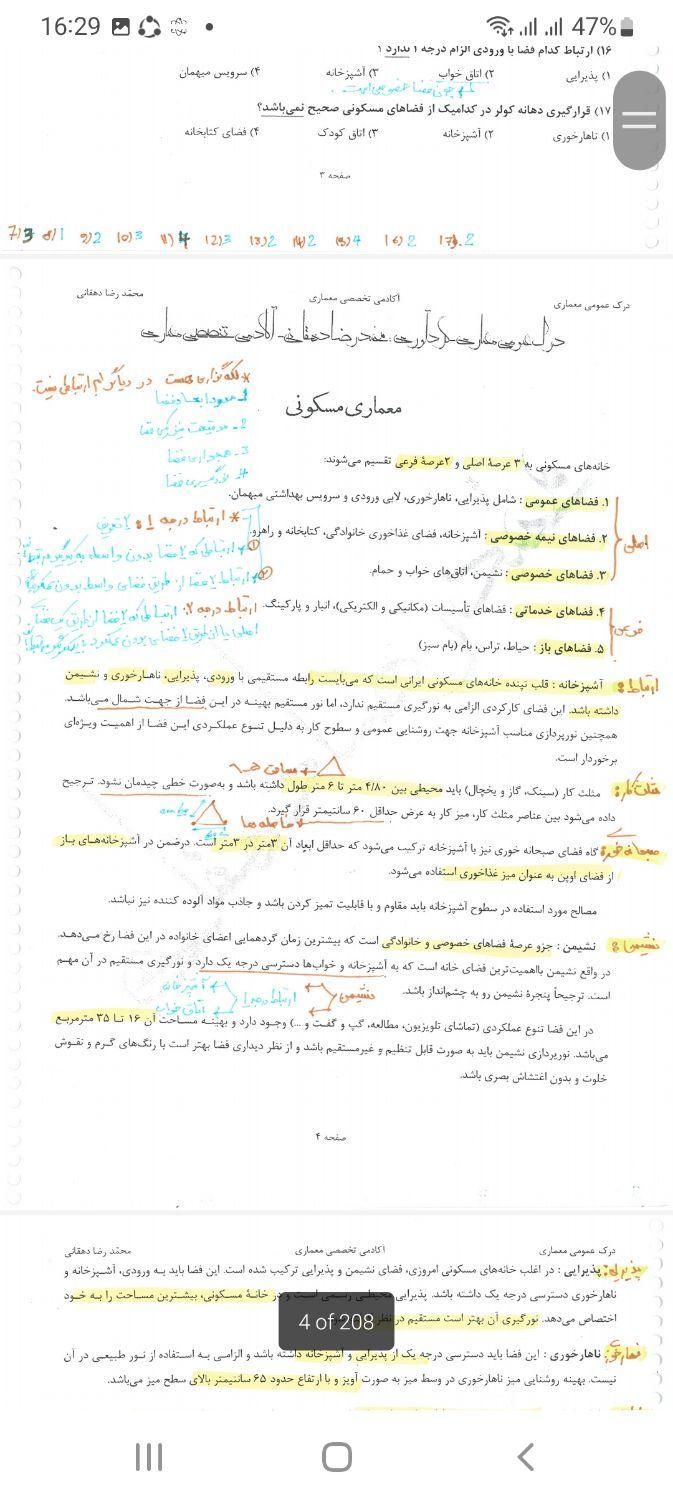 16:29
47%
۱۶) ارتباط کدام فضا با ورودی الزام درجه ۱ ندارد ؟
۱) پذیرایی ۲) اتاق خواب ۳) آشپزخانه ۴) سرویس میهمان
۱۷) قرارگیری دهانه کولر در کدامیک از فضاهای مسکونی صحیح نمی‌باشد؟
۱) ناهارخوری ۲) آشپزخانه ۳) اتاق کودک ۴) فضای کتابخانه
صفحه ۳
7)3 8)1 9)2 10)3 11)4 12)3 13)2 14)2 15)4 16)2 17).2
درک عمومی معماری آکادمی تخصصی معماری محمّد رضا دهقانی
درک عمومی معماری گردآورنده: محمدرضا دهقانی - آکادمی تخصصی معماری
معماری مسکونی
* لکه‌گذاری هست در دیاگرام ارتباطی نیست.
۱- حدود ابعاد فضا
۲- موقعیت فضا
۳- همجواری فضا
۴- نورگیری فضا
خانه‌های مسکونی به ۳ عرصهٔ اصلی و ۲عرصهٔ فرعی تقسیم می‌شوند:
۱. فضاهای عمومی : شامل پذیرایی، ناهارخوری، لابی ورودی و سرویس بهداشتی میهمان.
۲. فضاهای نیمه خصوصی : آشپزخانه، فضای غذاخوری خانوادگی، کتابخانه و راهرو.
۳. فضاهای خصوصی : نشیمن، اتاق‌های خواب و حمام.
اصلی
۴. فضاهای خدماتی : فضاهای تأسیسات (مکانیکی و الکتریکی)، انبار و پارکینگ.
۵. فضاهای باز : حیاط، تراس، بام (بام سبز)
فرعی
* ارتباط درجه ۱: ۲ تعریف
ارتباطی که ۲ فضا بدون واسطه به یکدیگر مرتبط
ارتباط ۲ فضا از طریق فضای واسط بدون عملکرد
ارتباط درجه ۲: ارتباطی که ۲ فضا از طریق یک فضای
ارتباط: آشپزخانه : قلب تپنده خانه‌های مسکونی ایرانی است که می‌بایست رابطه مستقیمی با ورودی، پذیرایی، ناهارخوری و نشیمن
داشته باشد. این فضای کارکردی الزامی به نورگیری مستقیم ندارد، اما نور مستقیم بهینه در این فضا از جهت شمال می‌باشد.
همچنین نورپردازی مناسب آشپزخانه جهت روشنایی عمومی و سطوح کار به دلیل تنوع عملکردی این فضا از اهمیت ویژه‌ای
برخوردار است.
مثلث کار: مثلث کار (سینک، گاز و یخچال) باید محیطی بین ۴/۸۰ متر تا ۶ متر طول داشته باشد و به‌صورت خطی چیدمان نشود. ترجیح
داده می‌شود بین عناصر مثلث کار، میز کار به عرض حداقل ۶۰ سانتیمتر قرار گیرد.
فاصله‌ها
صبحانه خوری گاه فضای صبحانه خوری نیز با آشپزخانه ترکیب می‌شود که حداقل ابعاد آن ۳متر در ۳متر است. درضمن در آشپزخانه‌های باز
از فضای اوپن به عنوان میز غذاخوری استفاده می‌شود.
مصالح مورد استفاده در سطوح آشپزخانه باید مقاوم و با قابلیت تمیز کردن باشد و جاذب مواد آلوده کننده نیز نباشد.
نشیمن: نشیمن : جزو عرصهٔ فضاهای خصوصی و خانوادگی است که بیشترین زمان گردهمایی اعضای خانواده در این فضا رخ می‌دهد.
در واقع نشیمن بااهمیت‌ترین فضای خانه است که به آشپزخانه و خواب‌ها دسترسی درجه یک دارد و نورگیری مستقیم در آن مهم
است. ترجیحاً پنجرهٔ نشیمن رو به چشم‌انداز باشد.
نشیمن ارتباط درجه ۱ آشپزخانه
اتاق خواب
در این فضا تنوع عملکردی (تماشای تلویزیون، مطالعه، گپ و گفت و ...) وجود دارد و بهینه مساحت آن ۱۶ تا ۳۵ مترمربع
می‌باشد. نورپردازی نشیمن باید به صورت قابل تنظیم و غیرمستقیم باشد و از نظر دیداری فضا بهتر است با رنگ‌های گرم و نقوش
خلوت و بدون اغتشاش بصری باشد.
صفحه ۴
درک عمومی معماری آکادمی تخصصی معماری محمّد رضا دهقانی
پذیرایی: پذیرایی : در اغلب خانه‌های مسکونی امروزی، فضای نشیمن و پذیرایی ترکیب شده است. این فضا باید به ورودی، آشپزخانه و
ناهارخوری دسترسی درجه یک داشته باشد. پذیرایی محیطی رسمی است و در خانهٔ مسکونی، بیشترین مساحت را به خود
اختصاص می‌دهد. نورگیری آن بهتر است مستقیم در نظر
4 of 208
ناهارخوری: ناهارخوری : این فضا باید دسترسی درجه یک از پذیرایی و آشپزخانه داشته باشد و الزامی به استفاده از نور طبیعی در آن
نیست. بهینه روشنایی میز ناهارخوری در وسط میز به صورت آویز و با ارتفاع حدود ۶۵ سانتیمتر بالای سطح میز می‌باشد.